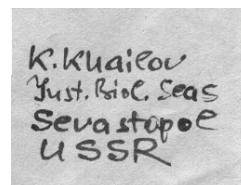 K. Khailov
Inst. Biol. Seas
Sevastopol
USSR